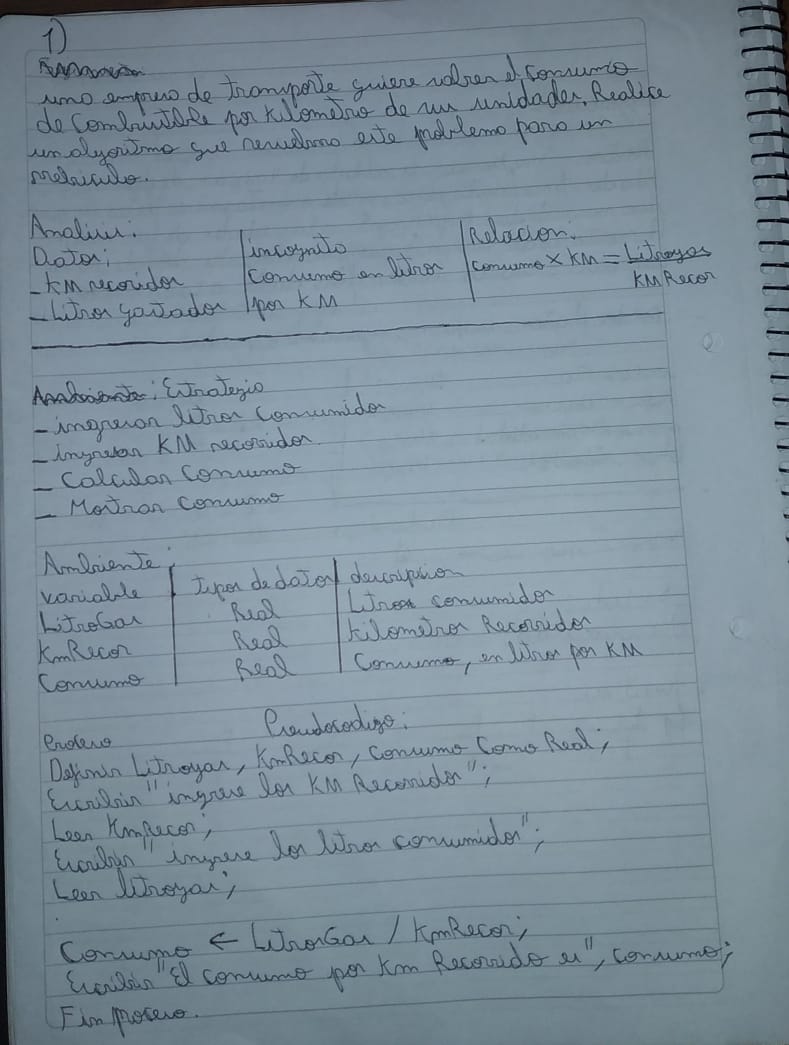 1)
una empresa de transporte quiere valuar el consumo
de combustible por kilometro de sus unidades, Realice
un algoritmo que resuelva este problema para un
vehiculo.
Analisis:
Datos: | incognita | Relacion:
- KM recorridos | Consumo en litros | Consumo x KM = Litrogas
- Litros gastados | por KM | KM Recor
Ambiente: Estrategia
- ingresar litros consumidos
- ingresar KM recorridos
- Calcular Consumo
- Mostrar Consumo
Ambiente:
variable | tipos de datos | descripcion
LitroGas | Real | Litros consumidos
KmRecor | Real | kilometros Recorridos
Consumo | Real | Consumo, en litros por KM
Pseudocodigo:
Proceso
Definir Litrogas, KmRecor, Consumo Como Real;
Escribir "ingrese los KM Recorridos";
Leer KmRecor;
Escribir "ingrese los litros consumidos";
Leer litrogas;
Consumo ← LitrosGas / KmRecor;
Escribir "El consumo por Km Recorrido es", consumo;
Fin proceso.